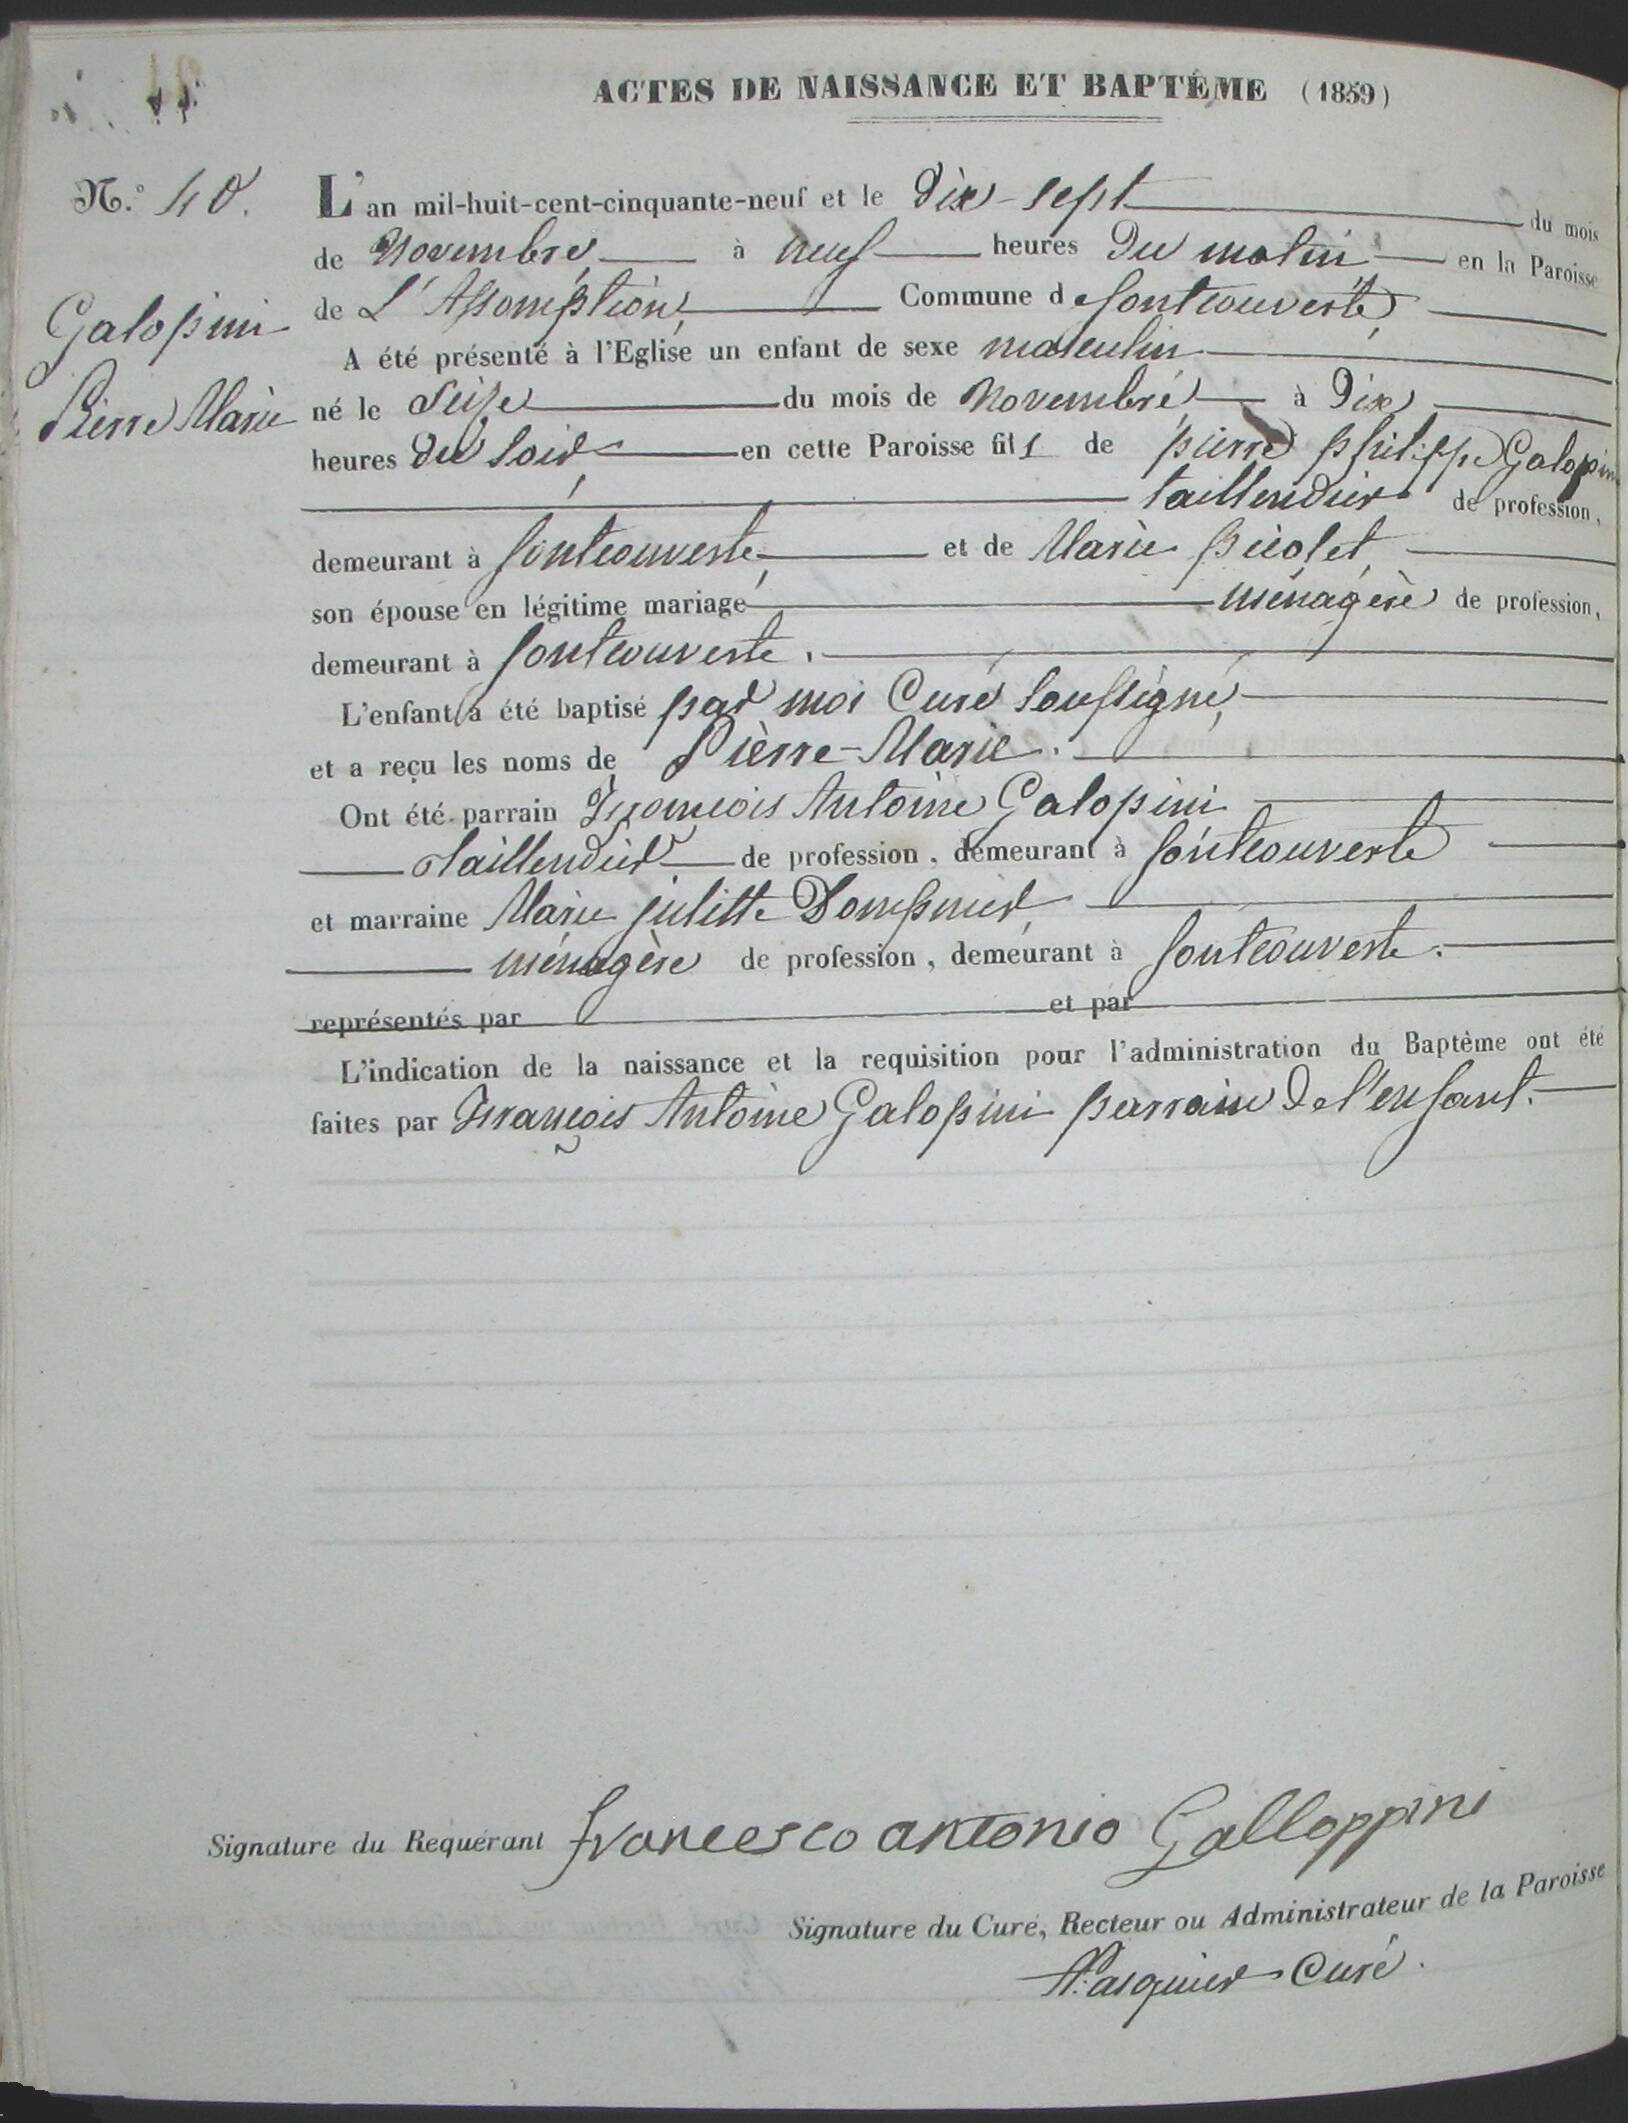 ACTES DE NAISSANCE ET BAPTÊME (1859)
N.º 40.
Galopini
Pierre Marie
L'an mil-huit-cent-cinquante-neuf et le Dix-sept du mois
de Novembre, à neuf heures Du matin en la Paroisse
de L'Assomption, Commune de fontcouverte,
A été présenté à l'Eglise un enfant de sexe masculin
né le Seize du mois de Novembre à Dix
heures du soir, en cette Paroisse fils de pierre philippe Galopini
taillendier de profession,
demeurant à fontcouverte, et de Marie
son épouse en légitime mariage ménagère de profession,
demeurant à fontcouverte.
L'enfant a été baptisé par moi Curé soussigné,
et a reçu les noms de Pierre-Marie.
Ont été parrain François Antoine Galopini
taillendier de profession, demeurant à fontcouverte
et marraine Marie julitte Dompnier
ménagère de profession, demeurant à fontcouverte.
représentés par et par
L'indication de la naissance et la requisition pour l'administration du Baptême ont été
faites par François Antoine Galopini parrain de l'enfant.
Signature du Requérant francesco antonio Galloppini
Signature du Curé, Recteur ou Administrateur de la Paroisse
Pasquier Curé.